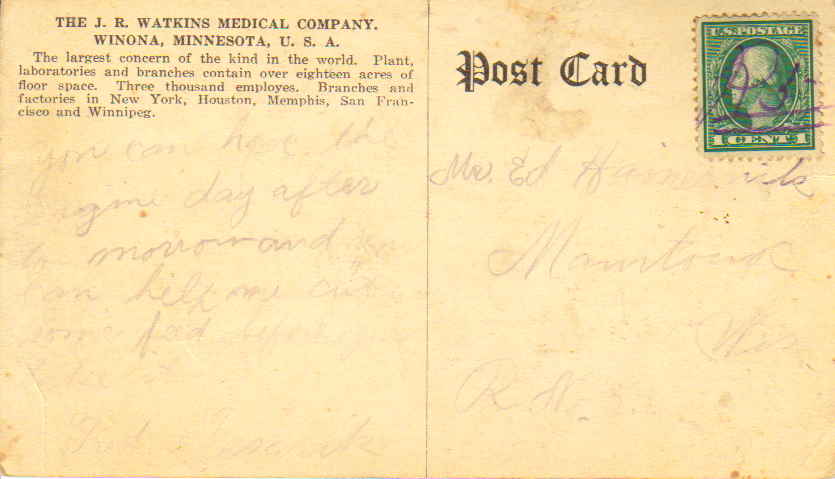 THE J. R. WATKINS MEDICAL COMPANY.
WINONA, MINNESOTA, U. S. A.
The largest concern of the kind in the world. Plant,
laboratories and branches contain over eighteen acres of
floor space. Three thousand employes. Branches and
factories in New York, Houston, Memphis, San Fran-
cisco and Winnipeg.
you can have the
engine day after
to morrow and you
can help me cut
some fod before you
take it
Post Card
U.S. POSTAGE
1 CENT 1
Mr. Ed
Wis
R